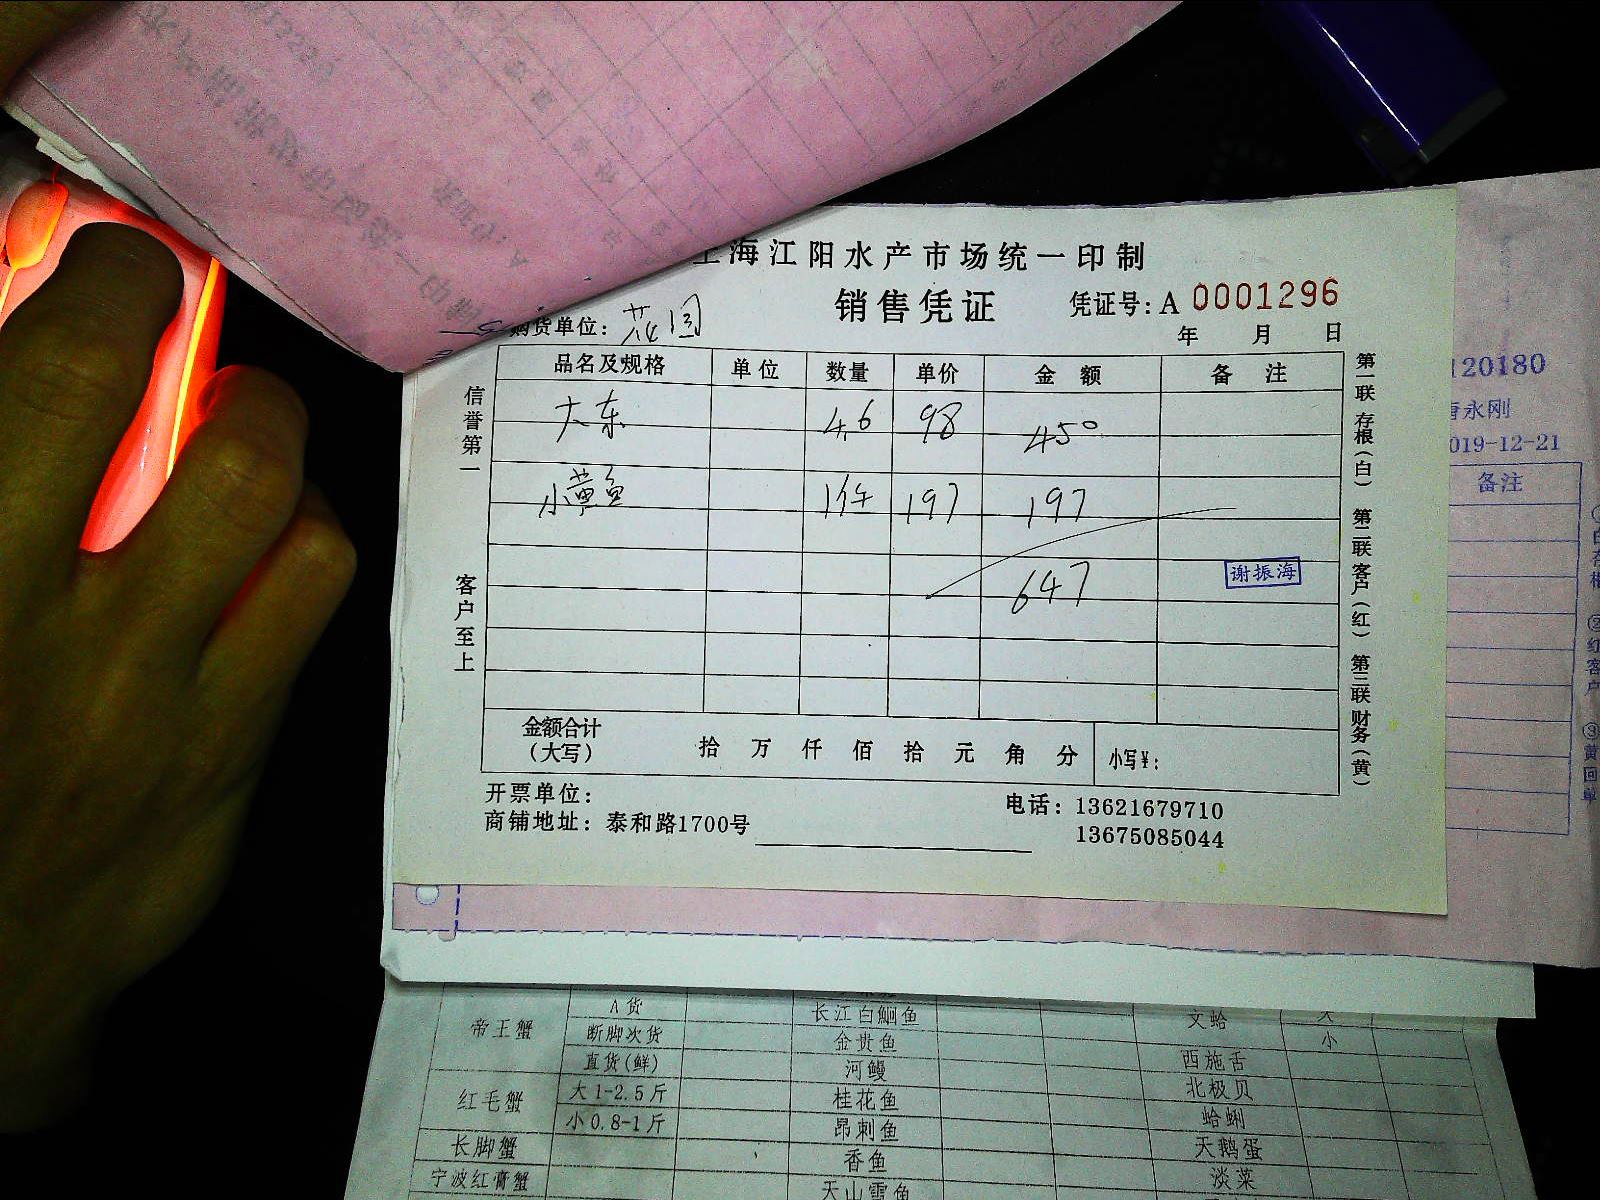 上海江阳水产市场统一印制
销售凭证
凭证号: A 0001296
购货单位: 花园
年 月 日
品名及规格 单位 数量 单价 金额 备注
大东 4.6 98 450
小黄鱼 1件 197 197
647
谢振海
金额合计
(大写) 拾 万 仟 佰 拾 元 角 分 小写¥:
开票单位:
商铺地址: 泰和路1700号
电话: 13621679710
13675085044
信誉第一
客户至上
第一联 存根(白) 第二联 客户(红) 第三联 财务(黄)
120180
永刚
019-12-21
备注
②红客户 ③黄回单
帝王蟹 A货 长江白鮰鱼 文蛤 大
断脚次货 金贵鱼 小
直货(鲜) 河鳗 西施舌
红毛蟹 大1-2.5斤 桂花鱼 北极贝
小0.8-1斤 昂刺鱼 蛤蜊
长脚蟹 香鱼 天鹅蛋
宁波红膏蟹 天山雪鱼 淡菜